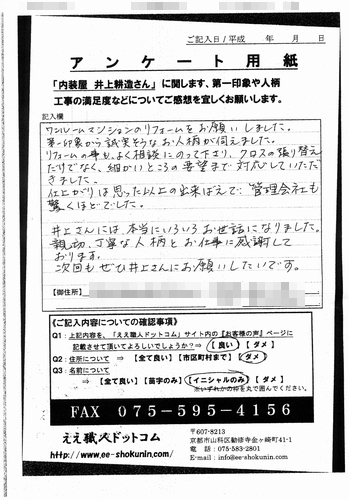 ご記入日/平成　年　月　日
アンケート用紙
「内装屋 井上耕造さん」に関します、第一印象や人柄
工事の満足度などについてご感想を宜しくお願いします。
記入欄
ワンルームマンションのリフォームをお願いしました。
第一印象から誠実そうなお人柄が伺えました。
リフォームの事も、よく相談にのって下さり、クロスの張り替え
だけでなく、細かいところの要望まで対応していただ
きました。
仕上がりは思った以上の出来ばえで、管理会社も
驚くほどでした。
井上さんには、本当にいろいろお世話になりました。
親切、丁寧な人柄とお仕事に感謝して
おります。
次回もぜひ井上さんにお願いしたいです。
【御住所】
《ご記入内容についての確認事項》
Q1:上記内容を、「ええ職人ドットコム」サイト内の『お客様の声』ページに
記載させて頂いてよろしいでしょうか?⇒【良い】【ダメ】
Q2:住所について ⇒【全て良い】【市区町村まで】【ダメ】
Q3:名前について
⇒【全て良い】【苗字のみ】【イニシャルのみ】【ダメ】
※いずれかの枠を丸で囲んでください。
FAX 075-595-4156
ええ職人ドットコム
http://www.ee-shokunin.com/
〒607-8213
京都市山科区勧修寺金ヶ崎町41-1
電話：075-583-2801
E-mail：info@ee-shokunin.com